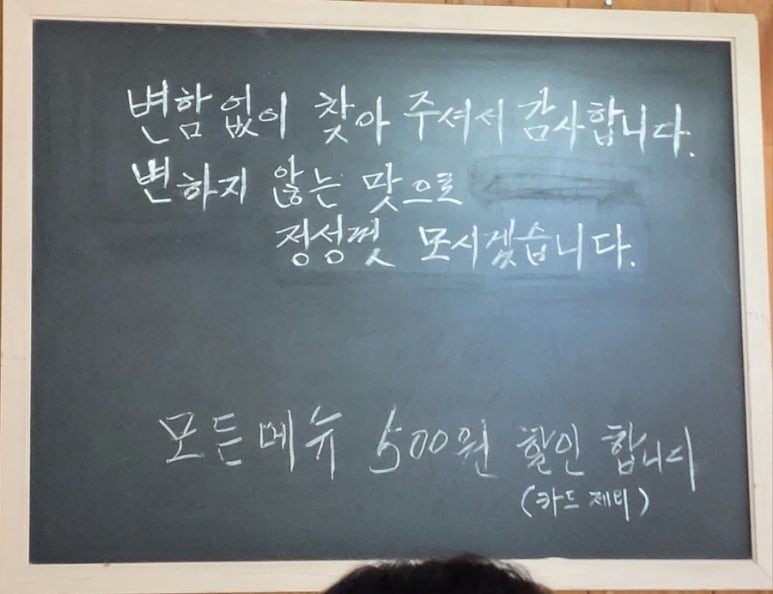 변함없이 찾아 주셔서 감사합니다.
변하지 않는 맛으로
정성껏 모시겠습니다.
모든메뉴 500원 할인 합니다
(카드 제외)